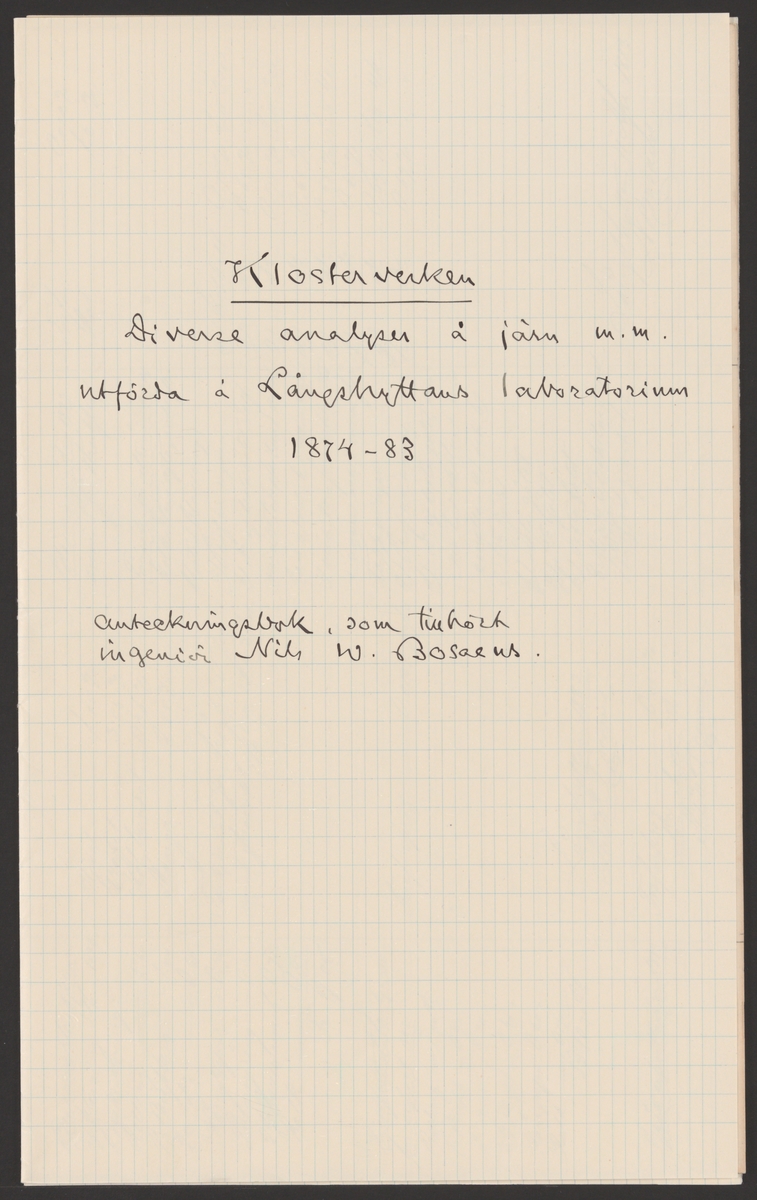 Klosterverken
Diverse analyser å järn m.m.
utförda å Långshyttans laboratorium
1874-83
anteckningsbok, som tillhört
ingeniör Nils W. Bosaeus.